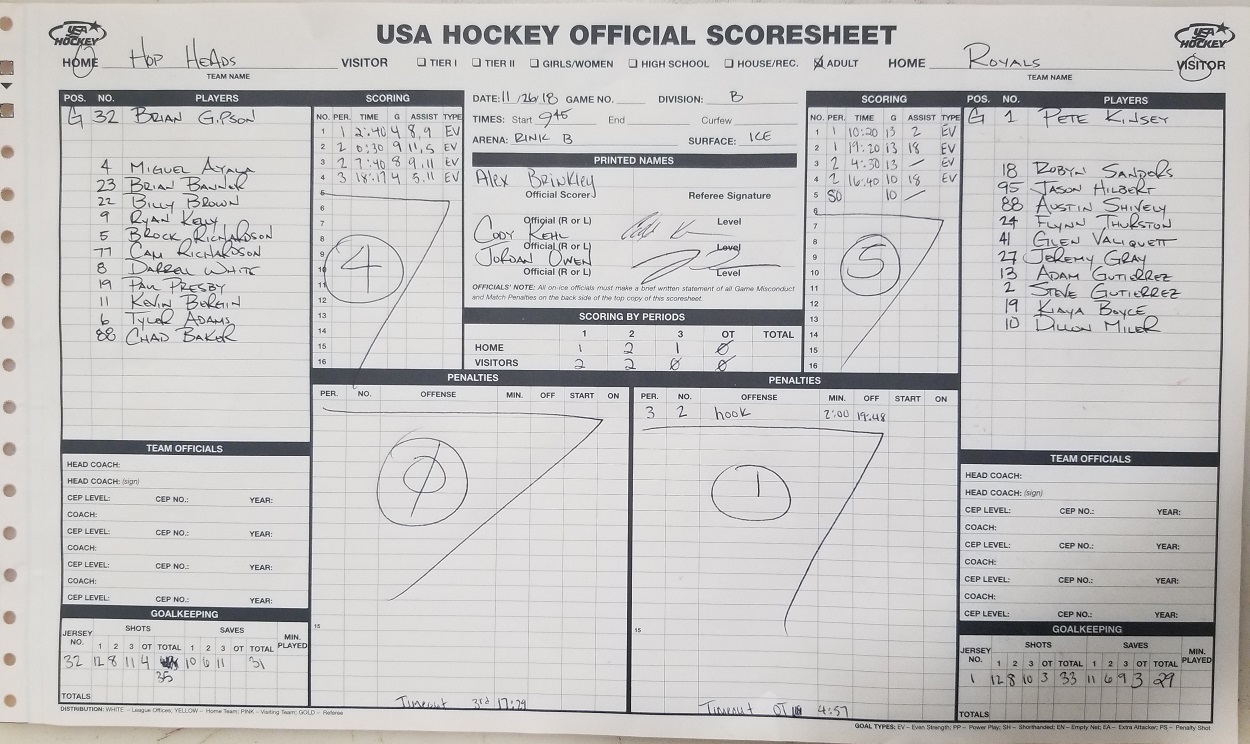 USA HOCKEY OFFICIAL SCORESHEET
USA HOCKEY
USA HOCKEY
HOME Hop Heads VISITOR
TEAM NAME
TIER I TIER II GIRLS/WOMEN HIGH SCHOOL HOUSE/REC. ADULT
HOME Royals VISITOR
TEAM NAME
POS. NO. PLAYERS
G 32 Brian Gipson
4 Miguel Ayala
23 Brian Banner
22 Billy Brown
9 Ryan Kelly
5 Brock Richardson
77 Cam Richardson
8 Darrell White
19 Paul Presby
11 Kevin Bergin
6 Tyler Adams
88 Chad Baker
SCORING
NO. PER. TIME G ASSIST TYPE
1 1 2:40 4 8,9 EV
2 2 0:30 9 11,5 EV
3 2 7:40 8 9,11 EV
4 3 18:17 4 5,11 EV
5
6
7
8
9
10
11
12
13
14
15
16
4
DATE: 11/26/18 GAME NO. DIVISION: B
TIMES: Start 9:45 End Curfew
ARENA: RINK B SURFACE: ICE
PRINTED NAMES
Alex Brinkley
Official Scorer Referee Signature
Official (R or L) Level
Cody Kehl
Official (R or L) Level
Jordan Owen
Official (R or L) Level
OFFICIALS' NOTE: All on-ice officials must make a brief written statement of all Game Misconduct
and Match Penalties on the back side of the top copy of this scoresheet.
SCORING BY PERIODS
1 2 3 OT TOTAL
HOME 1 2 1 0
VISITORS 2 2 0 0
SCORING
NO. PER. TIME G ASSIST TYPE
1 1 10:20 13 2 EV
2 1 19:20 13 18 EV
3 2 4:30 13 — EV
4 2 16:40 10 18 EV
5 SO 10 —
6
7
8
9
10
11
12
13
14
15
16
5
POS. NO. PLAYERS
G 1 Pete Kinsey
18 Robyn Sanders
95 Jason Hilbert
88 Austin Shively
24 Flynn Thurston
41 Glen Valiquett
27 Jeremy Gray
13 Adam Gutierrez
2 Steve Gutierrez
19 Kiaya Boyce
10 Dillon Miler
PENALTIES
PER. NO. OFFENSE MIN. OFF START ON
0
15
Timeout 3rd 17:29
PENALTIES
PER. NO. OFFENSE MIN. OFF START ON
3 2 hook 2:00 19:48
1
15
Timeout OT 4:57
TEAM OFFICIALS
HEAD COACH:
HEAD COACH: (sign)
CEP LEVEL: CEP NO.: YEAR:
COACH:
CEP LEVEL: CEP NO.: YEAR:
COACH:
CEP LEVEL: CEP NO.: YEAR:
COACH:
CEP LEVEL: CEP NO.: YEAR:
GOALKEEPING
JERSEY NO. SHOTS SAVES MIN. PLAYED
1 2 3 OT TOTAL 1 2 3 OT TOTAL
32 12 8 11 4 35 10 6 11 31
TOTALS
TEAM OFFICIALS
HEAD COACH:
HEAD COACH: (sign)
CEP LEVEL: CEP NO.: YEAR:
COACH:
CEP LEVEL: CEP NO.: YEAR:
COACH:
CEP LEVEL: CEP NO.: YEAR:
COACH:
CEP LEVEL: CEP NO.: YEAR:
GOALKEEPING
JERSEY NO. SHOTS SAVES MIN. PLAYED
1 2 3 OT TOTAL 1 2 3 OT TOTAL
1 12 8 10 3 33 11 6 9 3 29
TOTALS
DISTRIBUTION: WHITE – League Offices; YELLOW – Home Team; PINK – Visiting Team; GOLD – Referee
GOAL TYPES: EV – Even Strength; PP – Power Play; SH – Shorthanded; EN – Empty Net; EA – Extra Attacker; PS – Penalty Shot